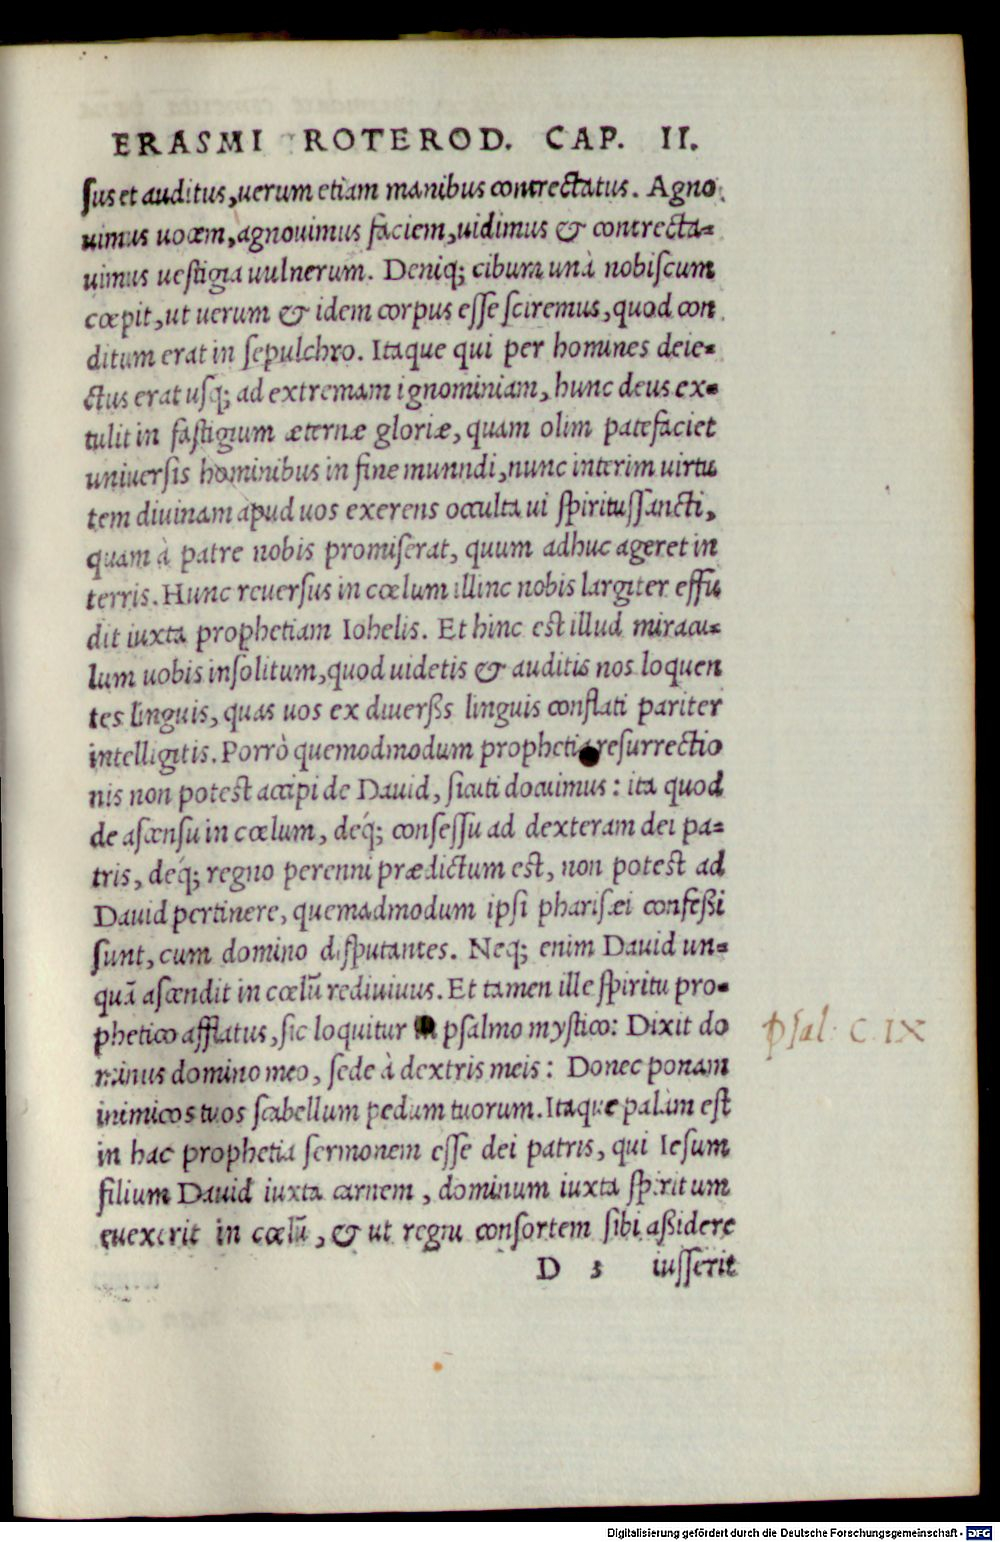 ERASMI ROTEROD. CAP. II.
ſus et auditus, uerum etiam manibus contrectatus. Agno
uimus uocem, agnouimus faciem, uidimus & contrecta-
uimus ueſtigia uulnerum. Deniq; cibum unà nobiſcum
cœpit, ut uerum & idem corpus eſſe ſciremus, quod con
ditum erat in ſepulchro. Itaque qui per homines deie-
ctus erat uſq; ad extremam ignominiam, hunc deus ex-
tulit in faſtigium æternæ gloriæ, quam olim patefaciet
uniuerſis hominibus in fine munndi, nunc interim uirtu
tem diuinam apud uos exerens occulta ui ſpirituſſancti,
quam à patre nobis promiſerat, quum adhuc ageret in
terris. Hunc reuerſus in cœlum illinc nobis largiter effu
dit iuxta prophetiam Iohelis. Et hinc eſt illud miracu-
lum uobis inſolitum, quod uidetis & auditis nos loquen
tes linguis, quas uos ex diuerſis linguis conflati pariter
intelligitis. Porrò quemodmodum propheti reſurrectio
nis non poteſt accipi de Dauid, ſicuti docuimus: ita quod
de aſcenſu in cœlum, déq; conſeſſu ad dexteram dei pa-
tris, déq; regno perenni prædictum eſt, non poteſt ad
Dauid pertinere, quemadmodum ipſi phariſæi confeßi
ſunt, cum domino diſputantes. Neq; enim Dauid un-
quā aſcendit in cœlū rediuiuus. Et tamen ille ſpiritu pro-
phetico afflatus, ſic loquitur in pſalmo myſtico: Dixit do
minus domino meo, ſede à dextris meis: Donec ponam
inimicos tuos ſcabellum pedum tuorum. Itaque palàm eſt
in hac prophetia ſermonem eſſe dei patris, qui Ieſum
filium Dauid iuxta carnem, dominum iuxta ſpiritum
euexerit in cœlū, & ut regni conſortem ſibi aßidere
D 3 iuſſerit
pſal. C.IX
Digitalisierung gefördert durch die Deutsche Forschungsgemeinschaft - DFG